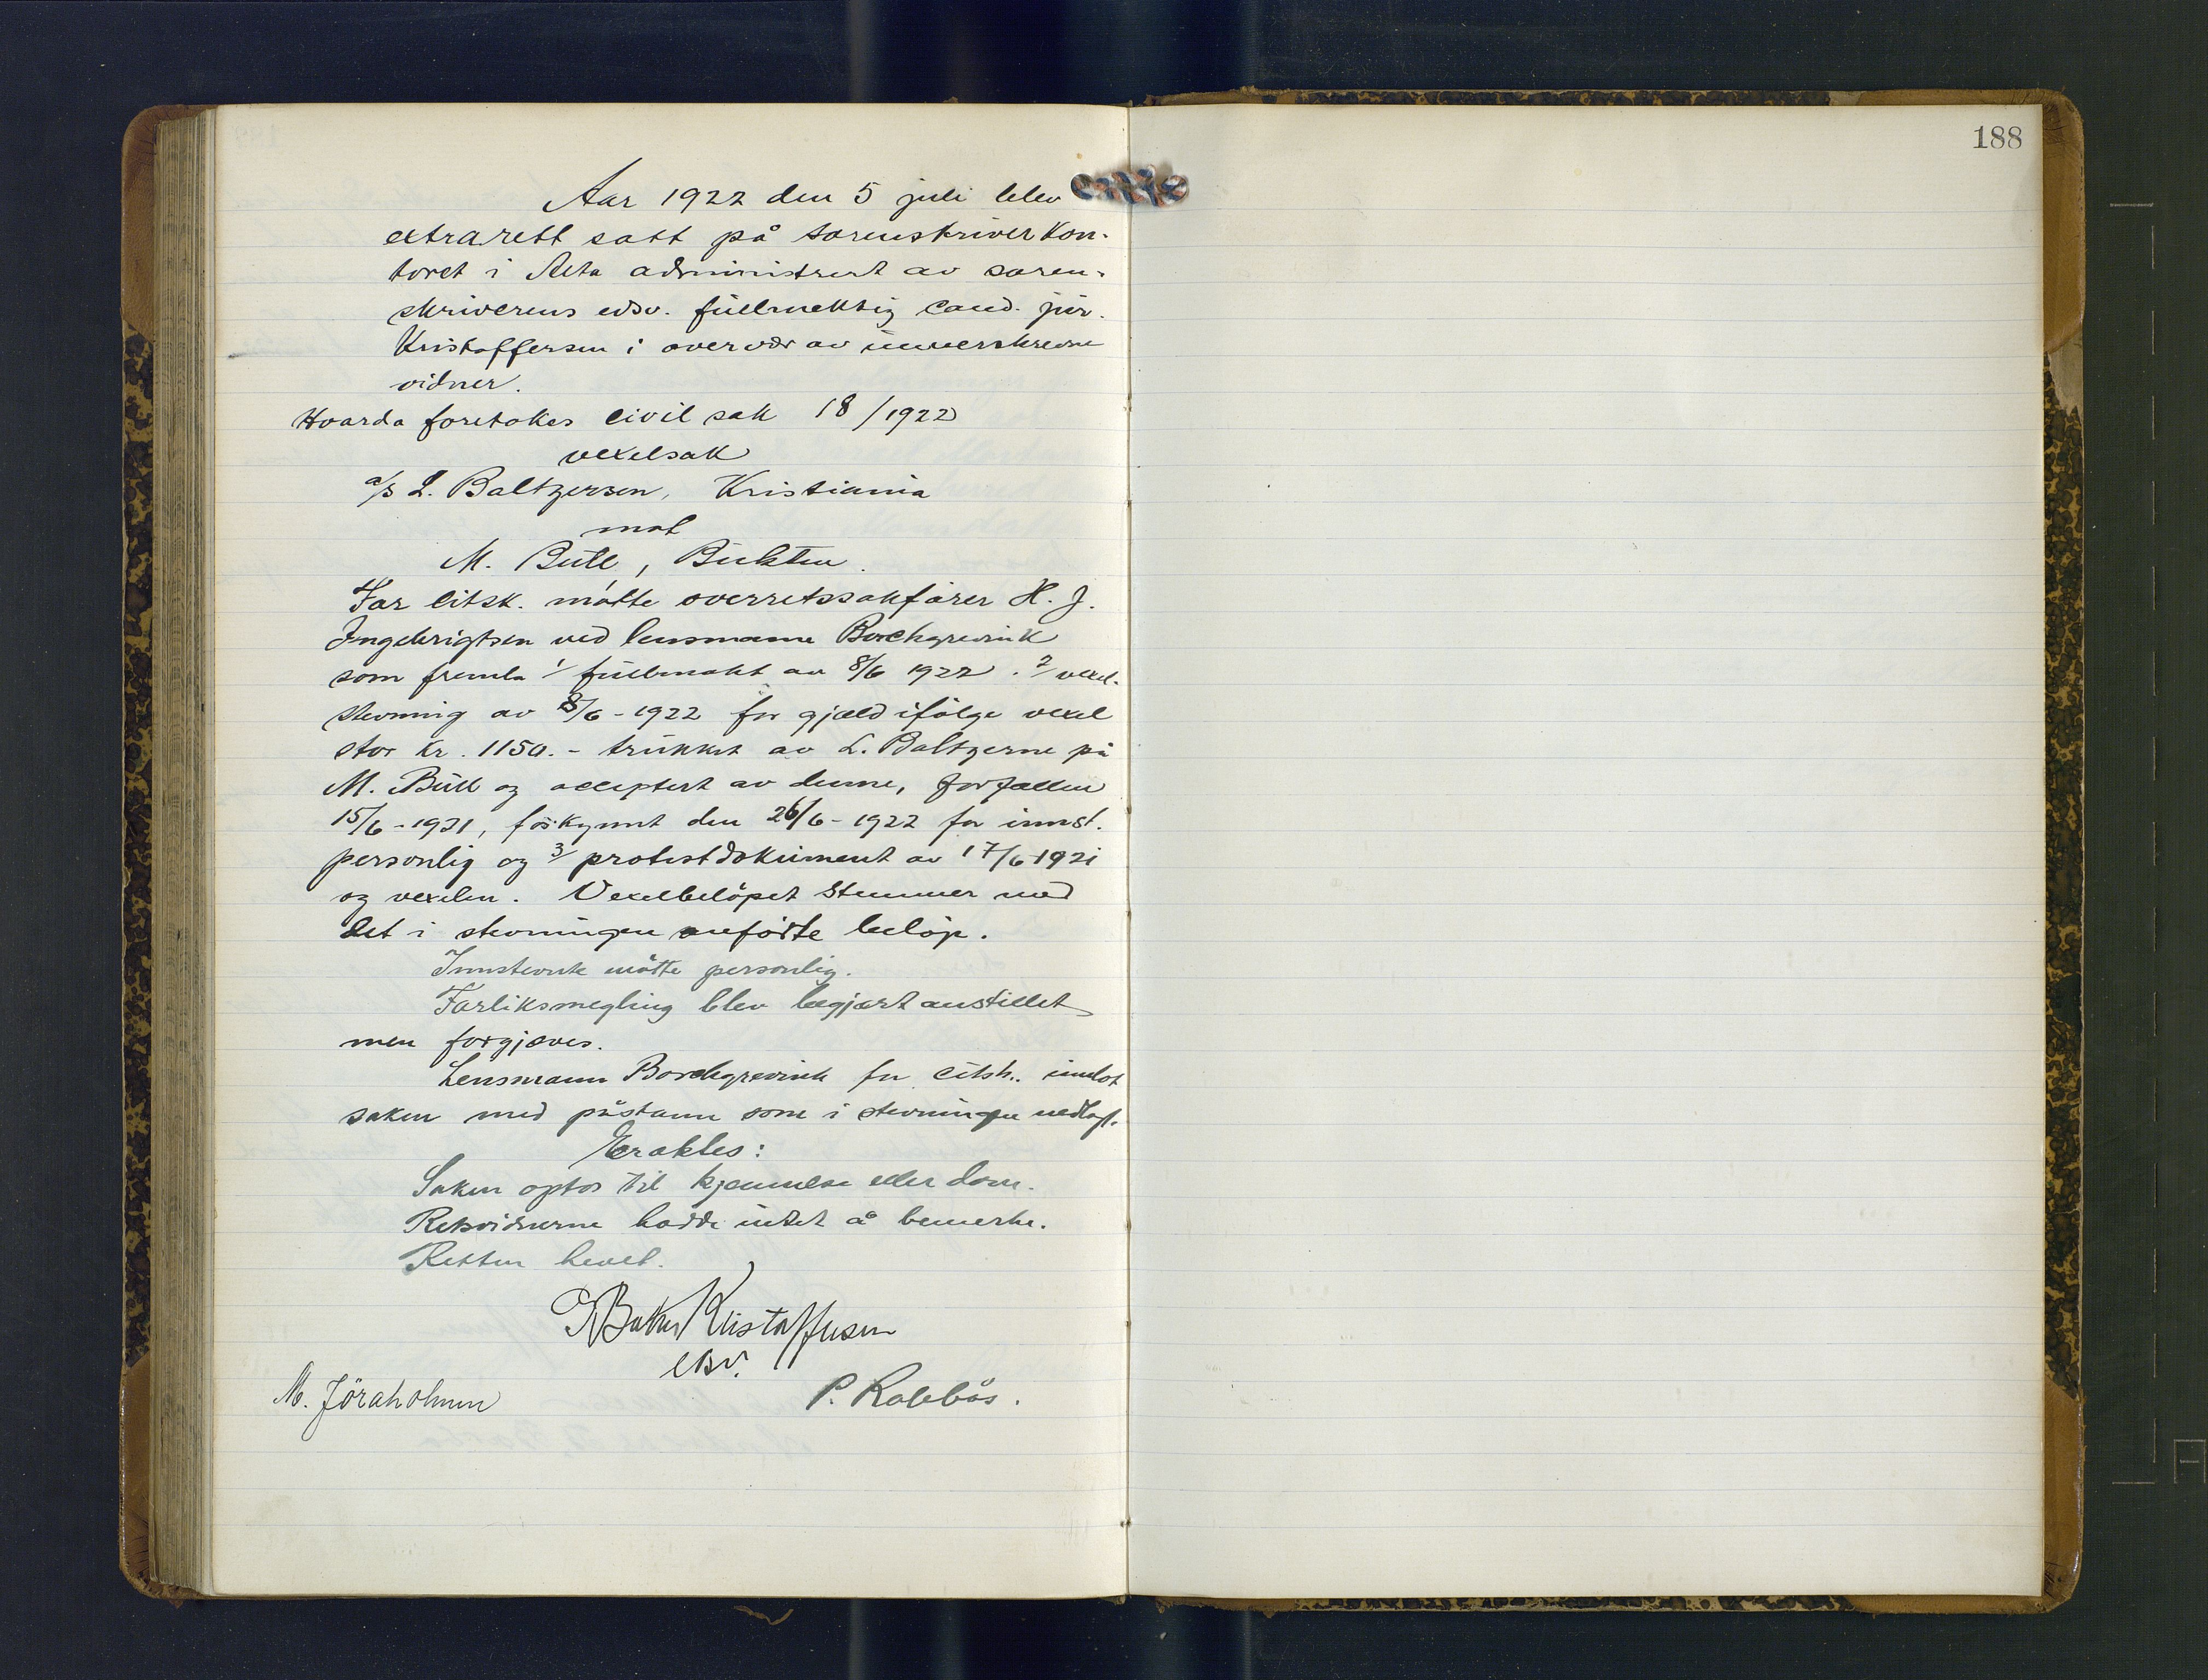 188
Aar 1922 den 5 juli blev
extrarett satt på sorenskriverkon-
toret i Alta administrert av soren-
skriverens edsv. fullmektig cand. jur.
Kristoffersen i overvær av unnerskrevne
vidner.
Hvorda foretokes civil sak 18/1922
vexelsak
a/s L. Baltzersen, Kristiania
mot
M. Bull, Bukten.
For citsk. møtte overretssakfører H. J.
Ingebrigtsen ved lensmann Borchgrevink
som fremla 1/ fullmakt av 8/6 1922. 2/ vexel-
stevning av 8/6-1922 for gjæld ifölge vexel
stor kr. 1150.- trukket av L. Baltzersen på
M. Bull og acceptert av denne, forfallen
15/6-1921, forkynnt den 26/6-1922 for innst.
personlig og 3/ protestdokument av 17/6 1921
og vexelen. Vexelbelöpet stemmer med
det i stevningen anförte belöp.
Innstevnte mötte personlig.
Forliksmegling blev begjært anstillet
men forgjæves.
Lensmann Borchgrevink for citsk. innlot
saken med påstann som i stevningen nedlagt.
Eraktes:
Saken optas til kjennelse eller dom.
Retsvidnerne hadde intet å bemerke.
Retten hevet.
Kristoffersen
edsv.
M. Jöraholmen
P. Robbås.